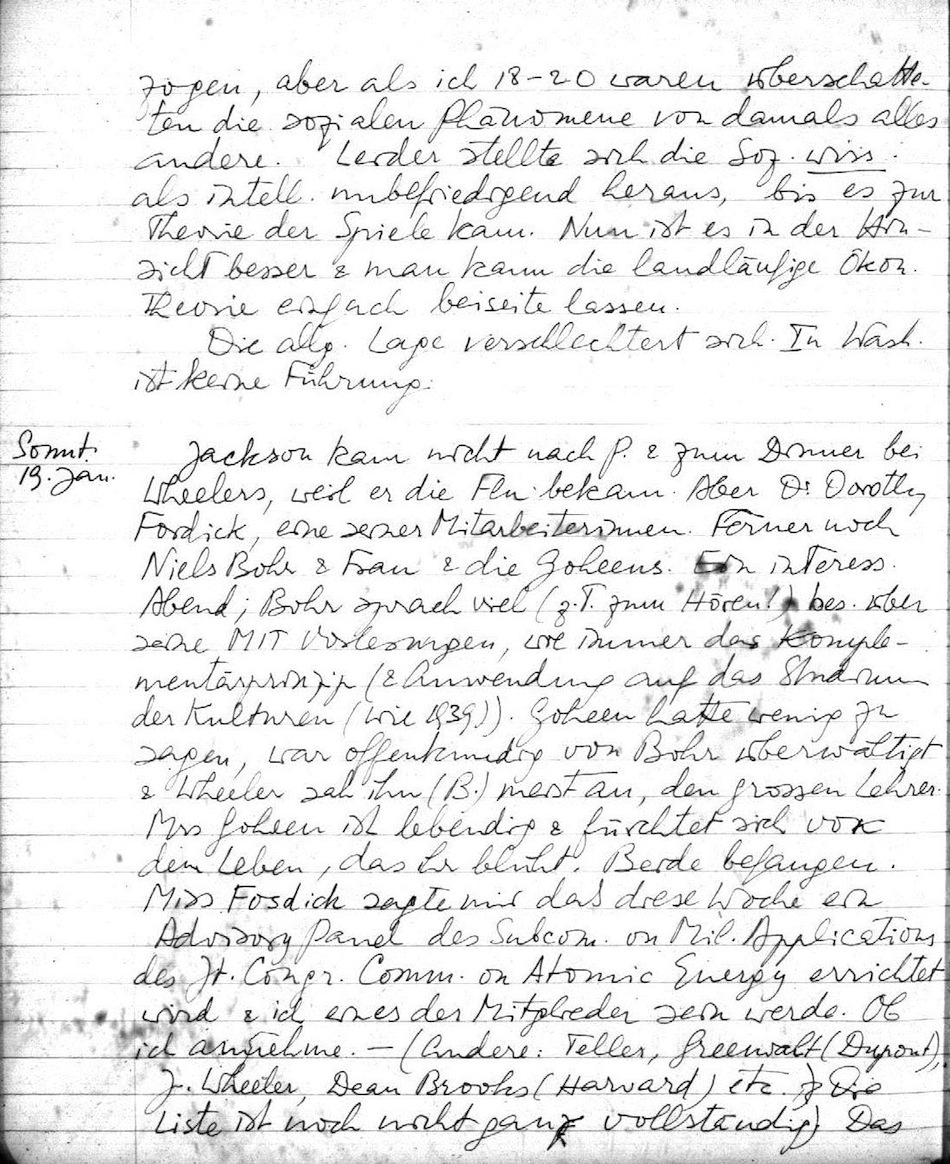 zogen, aber als ich 18-20 waren überschatte-
ten die sozialen Phänomene von damals alles
andere. Leider stellte sich die Soz. wiss.
als intell. unbefriedigend heraus, bis es zur
Theorie der Spiele kam. Nun ist es in der Hin-
sicht besser & man kann die landläufige Ökon.
Theorie einfach beiseite lassen.
Die allg. Lage verschlechtert sich. In Wash.
ist keine Führung.
Sonnt.
19. Jan.
Jackson kam nicht nach P. & zum Dinner bei
Wheelers, weil er die Flu bekam. Aber Dr Dorothy
Fosdick, eine seiner Mitarbeiterinnen. Ferner noch
Niels Bohr & Frau & die Goheens. Ein interess.
Abend; Bohr sprach viel (z.T. zum Hören!) bes. über
seine MIT Vorlesungen, wie immer das Komple-
mentärprinzip (& Anwendung auf das Studium
der Kulturen (wie 1939)). Goheen hatte wenig zu
sagen, war offenkundig von Bohr überwältigt
& Wheeler sah ihn (B.) meist an, den grossen Lehrer.
Mrs Goheen ist lebendig & fürchtet sich vor
dem Leben, das ihr blüht. Beide befangen.
Miss Fosdick sagte mir daß diese Woche ein
Advisory Panel des Subcom. on Mil. Applications
des Jt. Congr. Comm. on Atomic Energy errichtet
wird & ich eines der Mitglieder sein werde. Ob
ich annehme. — (Andere: Teller, Greenwalt (Dupont),
J. Wheeler, Dean Brooks (Harvard) etc. Die
Liste ist noch nicht ganz vollständig) Das